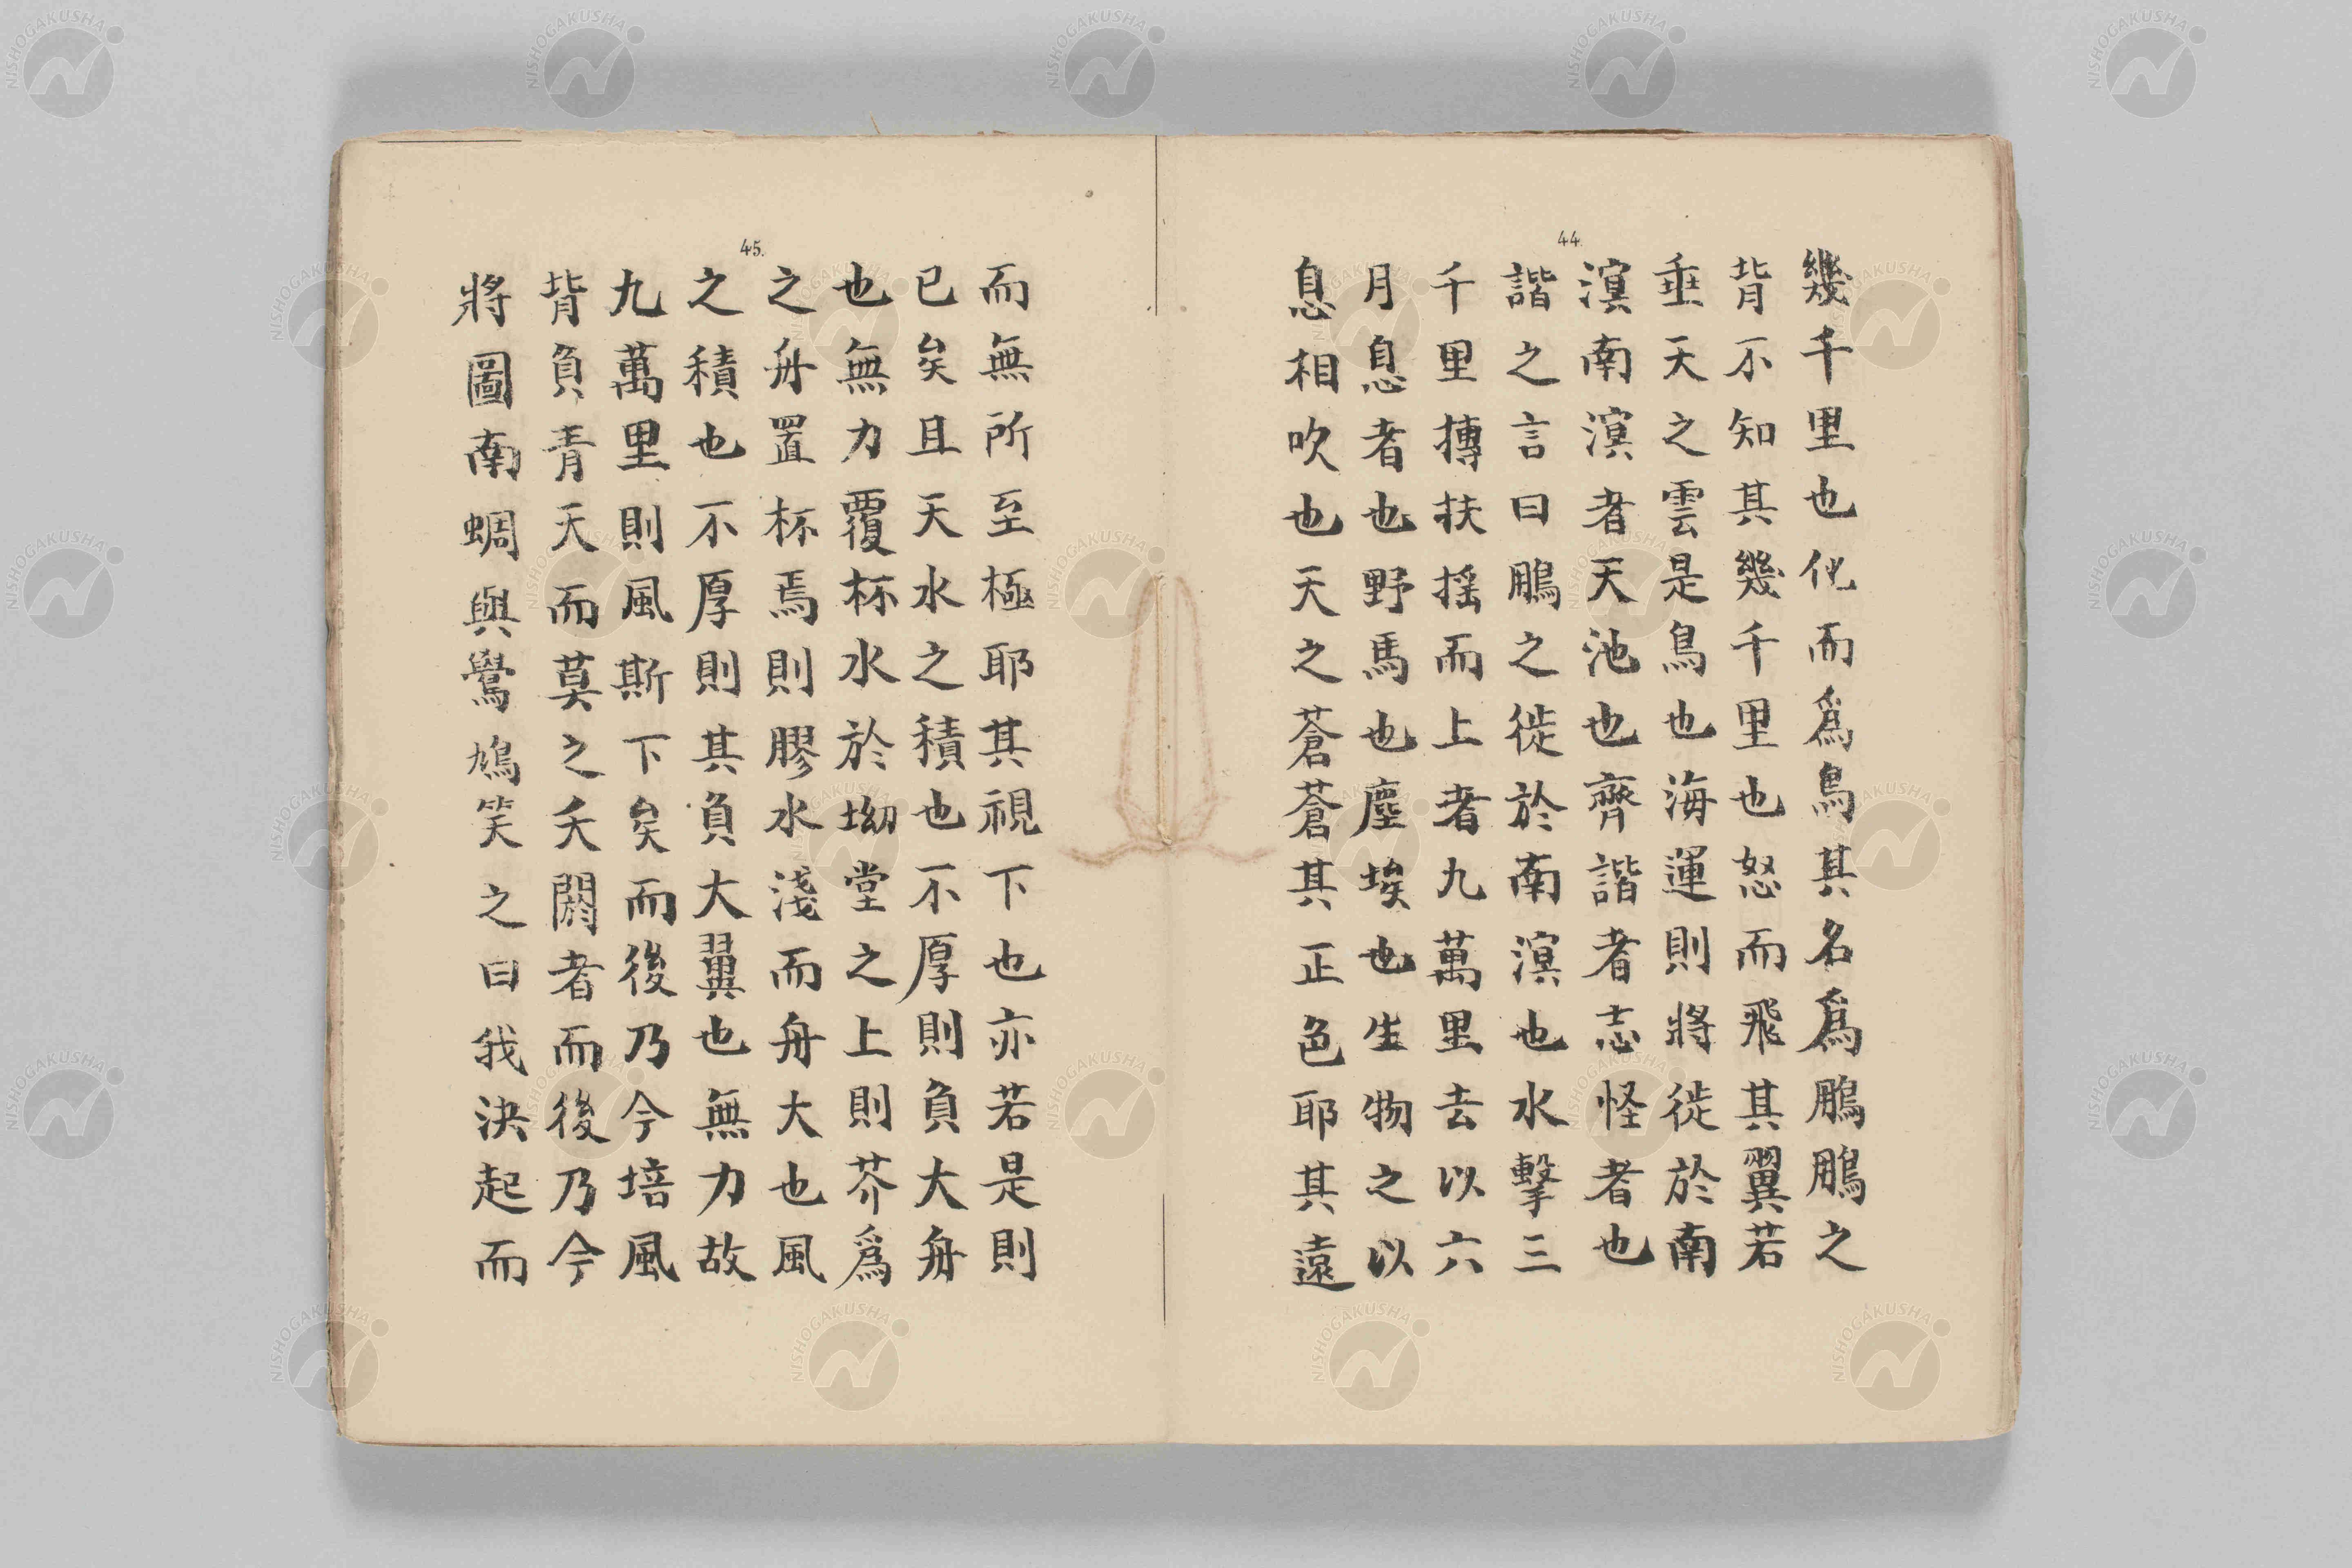 44.
幾千里也化而爲鳥其名爲鵬鵬之
背不知其幾千里也怒而飛其翼若
垂天之雲是鳥也海運則將徙於南
溟南溟者天池也齊諧者志怪者也
諧之言曰鵬之徙於南溟也水擊三
千里摶扶摇而上者九萬里去以六
月息者也野馬也塵埃也生物之以
息相吹也天之蒼蒼其正色耶其遠
45.
而無所至極耶其視下也亦若是則
已矣且天水之積也不厚則負大舟
也無力覆杯水於坳堂之上則芥爲
之舟置杯焉則膠水淺而舟大也風
之積也不厚則其負大翼也無力故
九萬里則風斯下矣而後乃今培風
背負青天而莫之夭閼者而後乃今
將圖南蜩與鷽鳩笑之曰我決起而
NISHOGAKUSHA